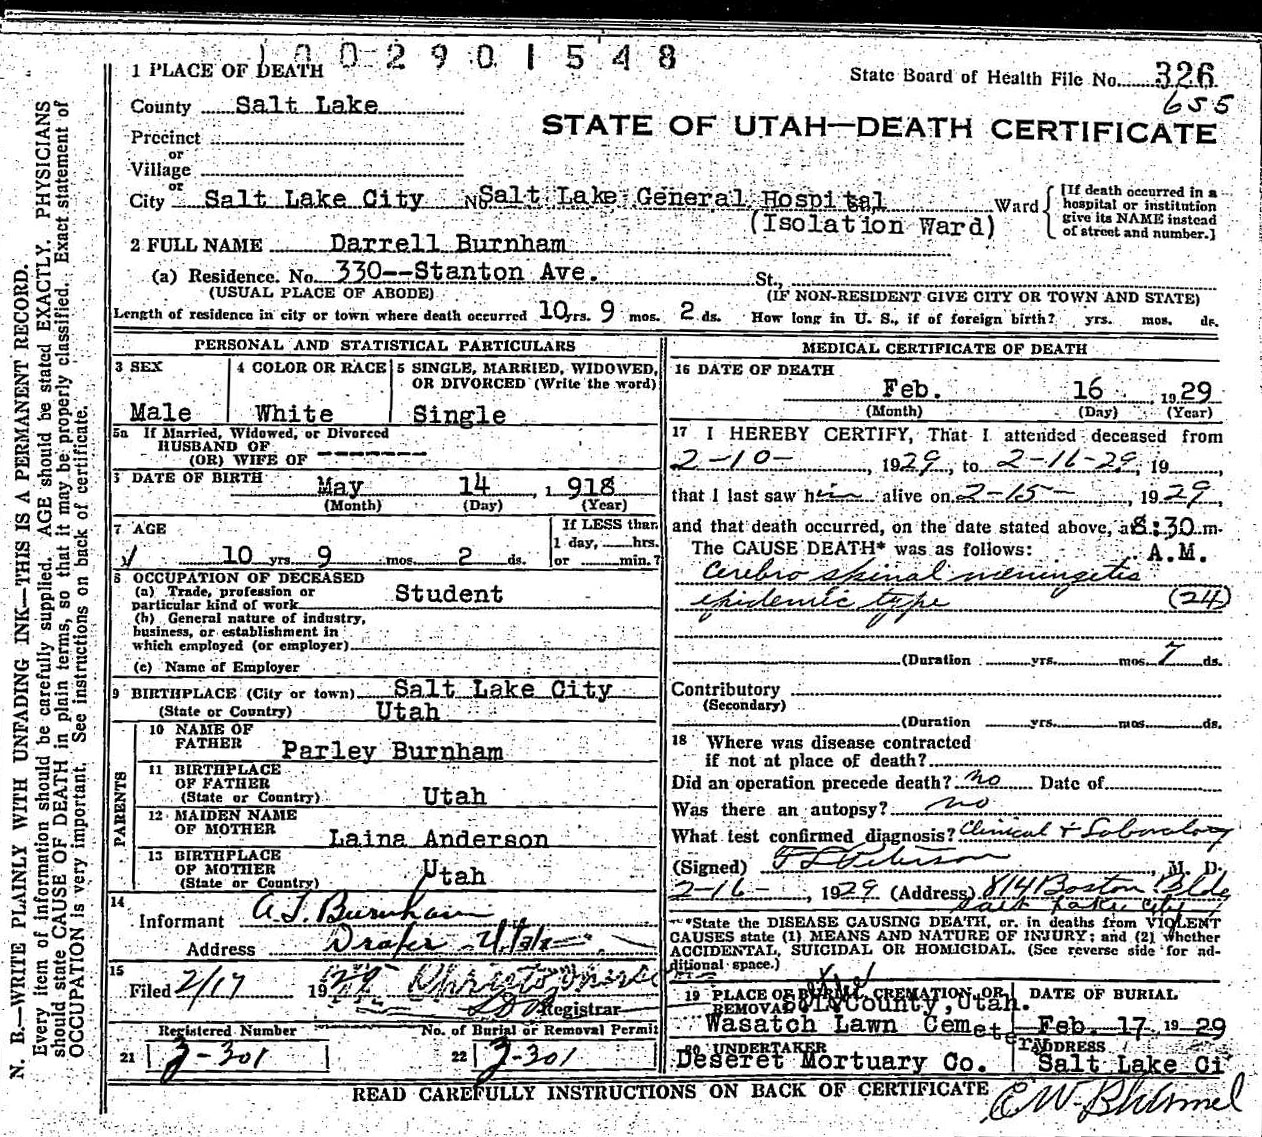 1002901548
1 PLACE OF DEATH
State Board of Health File No. 326
655
County Salt Lake
STATE OF UTAH—DEATH CERTIFICATE
Precinct
or
Village
or
City Salt Lake City No Salt Lake General Hospital Ward
(Isolation Ward)
[If death occurred in a
hospital or institution
give its NAME instead
of street and number.]
2 FULL NAME Darrell Burnham
(a) Residence. No. 330--Stanton Ave. St.,
(USUAL PLACE OF ABODE) (IF NON-RESIDENT GIVE CITY OR TOWN AND STATE)
Length of residence in city or town where death occurred 10 yrs. 9 mos. 2 ds. How long in U. S., if of foreign birth? yrs. mos. ds.
PERSONAL AND STATISTICAL PARTICULARS
3 SEX
Male
4 COLOR OR RACE
White
5 SINGLE, MARRIED, WIDOWED,
OR DIVORCED (Write the word)
Single
5a If Married, Widowed, or Divorced
HUSBAND OF
(OR) WIFE OF --------
DATE OF BIRTH
May 14, 1918
(Month) (Day) (Year)
7 AGE
10 yrs. 9 mos. 2 ds.
If LESS than
1 day, hrs.
or min.?
8 OCCUPATION OF DECEASED
(a) Trade, profession or
particular kind of work Student
(b) General nature of industry,
business, or establishment in
which employed (or employer)
(c) Name of Employer
9 BIRTHPLACE (City or town) Salt Lake City
(State or Country) Utah
PARENTS
10 NAME OF
FATHER Parley Burnham
11 BIRTHPLACE
OF FATHER
(State or Country) Utah
12 MAIDEN NAME
OF MOTHER Laina Anderson
13 BIRTHPLACE
OF MOTHER
(State or Country) Utah
14
Informant A. J. Burnham
Address Draper Utah
15
Filed 2/17 19
Registrar
Registered Number
21 2-301
No. of Burial or Removal Permit
22 2-301
MEDICAL CERTIFICATE OF DEATH
16 DATE OF DEATH
Feb. 16, 1929
(Month) (Day) (Year)
17 I HEREBY CERTIFY, That I attended deceased from
2-10-, 1929, to 2-16-29, 19
that I last saw him alive on 2-15-, 1929,
and that death occurred, on the date stated above, at 8:30 m.
The CAUSE DEATH* was as follows: A.M.
Cerebro skinal meningetis
epidemic type (24)
(Duration yrs. mos. 7 ds.
Contributory
(Secondary)
(Duration yrs. mos. ds.
18 Where was disease contracted
if not at place of death?
Did an operation precede death? no Date of
Was there an autopsy? no
What test confirmed diagnosis? Clinical & Laboratory
(Signed) M. D.
2-16-, 1929 (Address) 814 Boston Bldg
Salt Lake City
*State the DISEASE CAUSING DEATH, or, in deaths from VIOLENT
CAUSES state (1) MEANS AND NATURE OF INJURY; and (2) whether
ACCIDENTAL, SUICIDAL OR HOMICIDAL. (See reverse side for ad-
ditional space.)
19 PLACE OF BURIAL, CREMATION, OR
REMOVAL County, Utah.
Wasatch Lawn Cemetery
DATE OF BURIAL
Feb. 17 1929
20 UNDERTAKER
Deseret Mortuary Co.
ADDRESS
Salt Lake Ci
READ CAREFULLY INSTRUCTIONS ON BACK OF CERTIFICATE
N. B.—WRITE PLAINLY WITH UNFADING INK—THIS IS A PERMANENT RECORD.
Every item of information should be carefully supplied. AGE should be stated EXACTLY. PHYSICIANS
should state CAUSE OF DEATH in plain terms, so that it may be properly classified. Exact statement of
OCCUPATION is very important. See instructions on back of certificate.